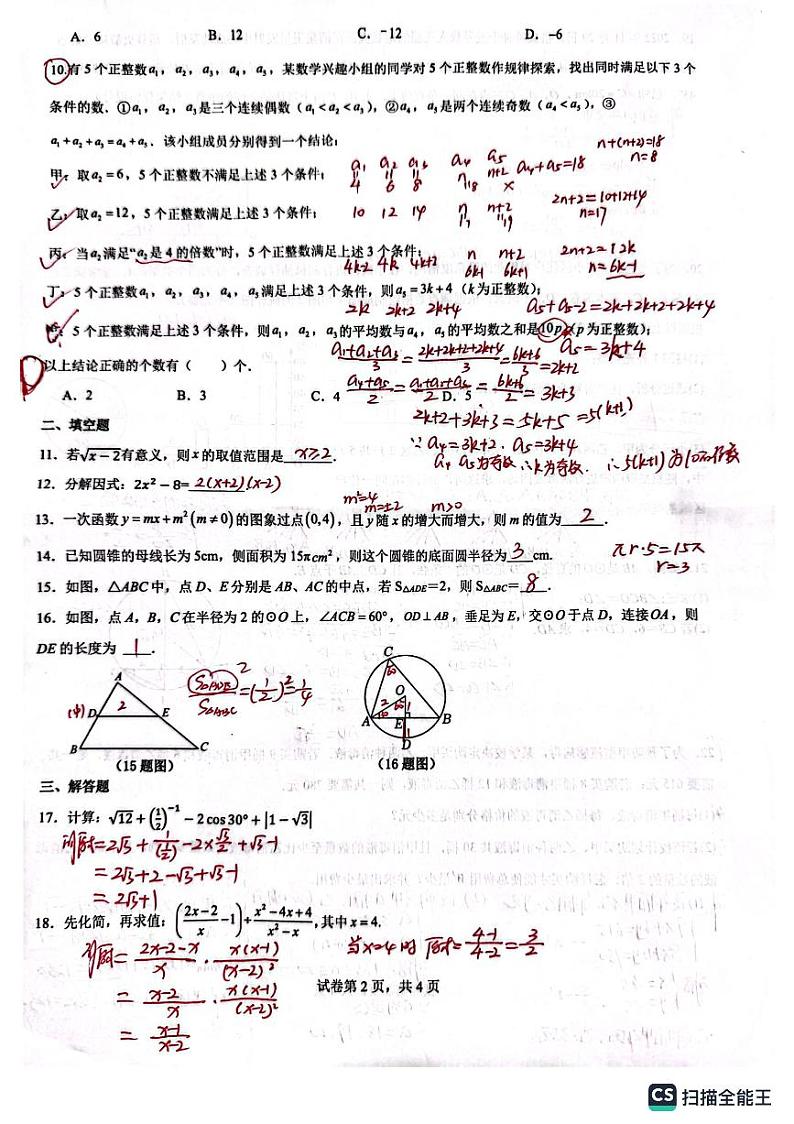 A. 6 B. 12 C. -12 D. -6
10.有 5 个正整数a₁，a₂，a₃，a₄，a₅，某数学兴趣小组的同学对 5 个正整数作规律探索，找出同时满足以下 3 个
条件的数．①a₁，a₂，a₃是三个连续偶数（a₁<a₂<a₃），②a₄，a₅是两个连续奇数（a₄<a₅），③
a₁+a₂+a₃=a₄+a₅．该小组成员分别得到一个结论：
n+(n+2)=18
n=8
甲：取a₂=6，5 个正整数不满足上述 3 个条件；
a₁ a₂ a₃ a₄ a₅ a₄+a₅=18
4 6 8 n n+2
18 ×
乙：取a₂=12，5 个正整数满足上述 3 个条件；
10 12 14 n n+2
17 19
2n+2=10+12+14
n=17
丙：当a₂满足“a₂是 4 的倍数”时，5 个正整数满足上述 3 个条件；
4k-2 4k 4k+2 n n+2
6k-1 6k+1
2n+2=12k
n=6k-1
丁：5 个正整数a₁，a₂，a₃，a₄，a₅满足上述 3 个条件，则a₅=3k+4（k为正整数）；
2k 2k+2 2k+4
a₅+a₅-2=2k+2k+2+2k+4
a₅=3k+4
戊：5 个正整数满足上述 3 个条件，则a₁，a₂，a₃的平均数与a₄，a₅的平均数之和是10p（p为正整数）；
(a₁+a₂+a₃)/3=(2k+2k+2+2k+4)/3=(6k+6)/3=2k+2
D
以上结论正确的个数有（ ）个．
(a₄+a₅)/2=(a₁+a₂+a₃)/2=(6k+6)/2=3k+3
A．2 B．3 C．4 D．5
2k+2+3k+3=5k+5=5(k+1)
二、填空题
∵a₄=3k+2．a₅=3k+4
a₄ a₅为奇数 ∴k为奇数． ∴5(k+1)为10的倍数
11．若√(x−2)有意义，则x的取值范围是 x≥2 ．
12．分解因式：2x²－8= 2(x+2)(x-2)
m²=4
m=±2 m>0
13．一次函数y=mx+m²(m≠0)的图象过点(0,4)，且y随x的增大而增大，则m的值为 2 ．
14．已知圆锥的母线长为 5cm，侧面积为 15πcm²，则这个圆锥的底面圆半径为 3 cm.
πr·5=15π
r=3
15．如图，△ABC 中，点 D、E 分别是 AB、AC 的中点，若 S△ADE＝2，则 S△ABC＝ 8 ．
16．如图，点 A，B，C 在半径为 2 的⊙O 上，∠ACB=60°，OD⊥AB，垂足为 E，交⊙O 于点 D，连接OA，则
DE 的长度为 1 ．
S△ADE/S△ABC=(1/2)²=1/4
2
A
(中) D 2 E
B C
C
60
O
2 60 1
A 30 E B
1
D
（15 题图） （16 题图）
三、解答题
17．计算：√12+(1/2)⁻¹−2cos30°+|1−√3|
解:原式=2√3+1/(1/2)-2×√3/2+√3-1
=2√3+2-√3+√3-1
=2√3+1
18．先化简，再求值：((2x−2)/x−1)÷(x²−4x+4)/(x²−x),其中x=4.
解:原式=(2x-2-x)/x·x(x-1)/(x-2)²
=(x-2)/x·x(x-1)/(x-2)²
=(x-1)/(x-2)
当x=4时 原式=(4-1)/(4-2)=3/2
试卷第 2 页，共 4 页
CS 扫描全能王